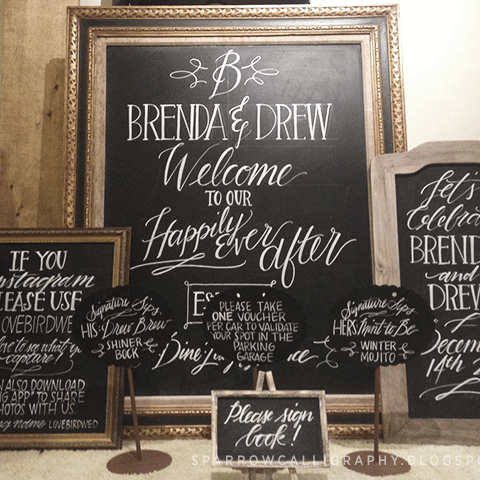 B
BRENDA & DREW
Welcome
TO OUR
Happily
Ever After
IF YOU
Instagram
PLEASE USE
LOVEBIRDWED
ALSO DOWNLOAD
APP TO SHARE
PHOTOS WITH US.
name LOVEBIRDWED
Signature Sips
HIS: Drew Brew
SHINER
BOCK
PLEASE TAKE
ONE VOUCHER
PER CAR TO VALIDATE
YOUR SPOT IN THE
PARKING
GARAGE
Signature Sips
HERS: Mint to Be
WINTER
MOJITO
Please sign
book!
Let's
BREND
and
DREW
14th
SPARROWCALLIGRAPHY.BLOGSPO